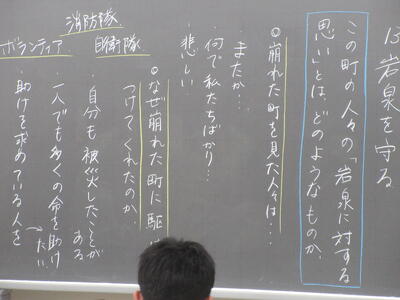 13 岩泉を守る
この町の人々の「岩泉に対する
思い」とは、どのようなものか。
◎崩れた町を見た人々は…
・またか…
・何で私たちばかり…
・悲しい
◎なぜ崩れた町に駆け
つけてくれたのか
・自分も被災したことが
ある
・一人でも多くの命を助け
たい
・助けを求めている人を
消防隊
自衛隊
ボランティア